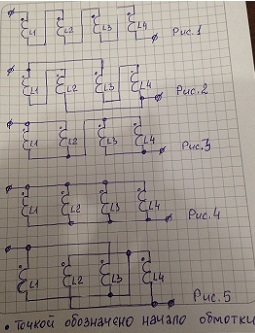 L1 L2 L3 L4 Рис.1
L1 L2 L3 L4 Рис.2
L1 L2 L3 L4 Рис.3
L1 L2 L3 L4 Рис.4
L1 L2 L3 L4 Рис.5
• точкой обозначено начало обмотки